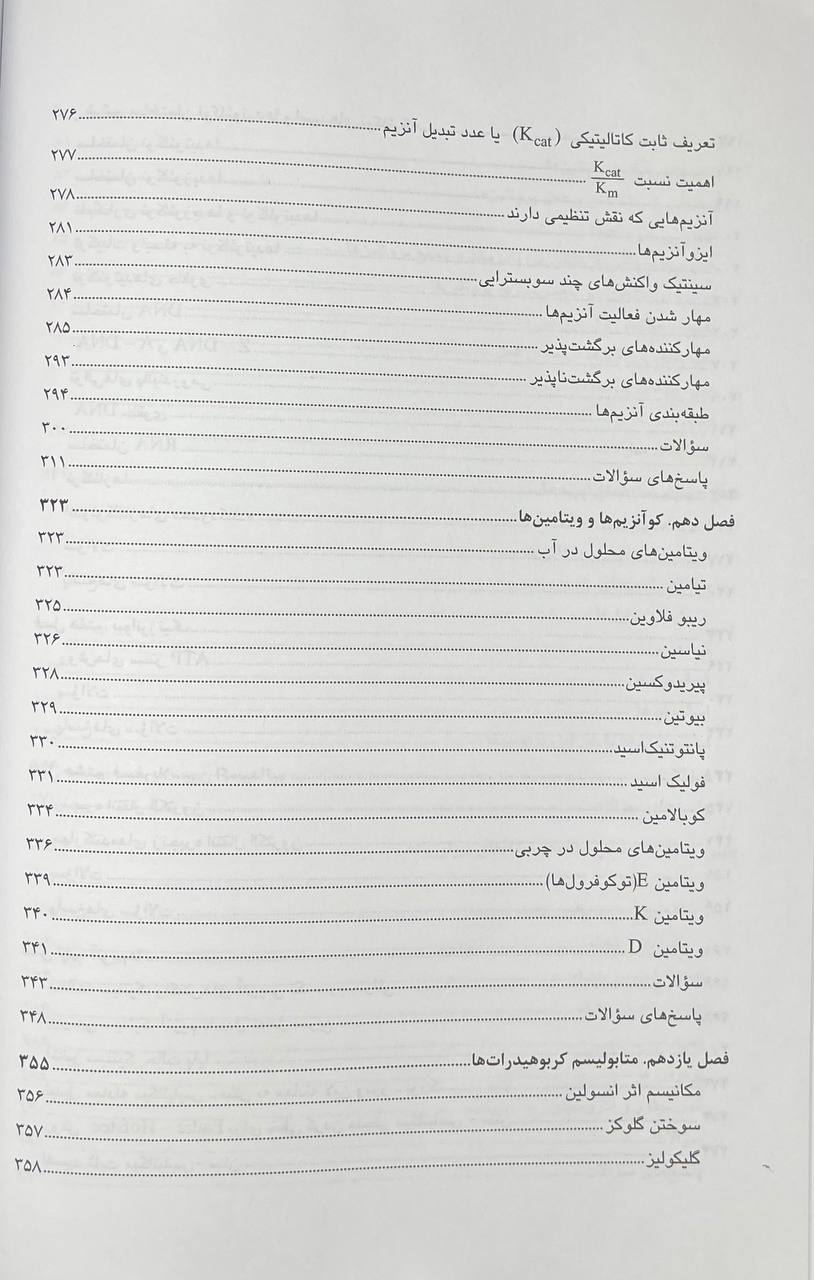 تعریف ثابت کاتالیتیکی (Kcat) یا عدد تبدیل آنزیم ۲۷۶
اهمیت نسبت Kcat/Km ۲۷۷
آنزیم‌هایی که نقش تنظیمی دارند ۲۷۸
ایزوآنزیم‌ها ۲۸۱
سینتیک واکنش‌های چند سوبسترایی ۲۸۳
مهار شدن فعالیت آنزیم‌ها ۲۸۴
مهارکننده‌های برگشت‌پذیر ۲۸۵
مهارکننده‌های برگشت‌ناپذیر ۲۹۳
طبقه‌بندی آنزیم‌ها ۲۹۴
سؤالات ۳۰۰
پاسخ‌های سؤالات ۳۱۱
فصل دهم. کوآنزیم‌ها و ویتامین‌ها ۳۲۳
ویتامین‌های محلول در آب ۳۲۳
تیامین ۳۲۳
ریبو فلاوین ۳۲۵
نیاسین ۳۲۶
پیریدوکسین ۳۲۸
بیوتین ۳۲۹
پانتوتنیک‌اسید ۳۳۰
فولیک اسید ۳۳۱
کوبالامین ۳۳۴
ویتامین‌های محلول در چربی ۳۳۶
ویتامین E(توکوفرول‌ها) ۳۳۹
ویتامین K ۳۴۰
ویتامین D ۳۴۱
سؤالات ۳۴۳
پاسخ‌های سؤالات ۳۴۸
فصل یازدهم. متابولیسم کربوهیدرات‌ها ۳۵۵
مکانیسم اثر انسولین ۳۵۶
سوختن گلوکز ۳۵۷
گلیکولیز ۳۵۸